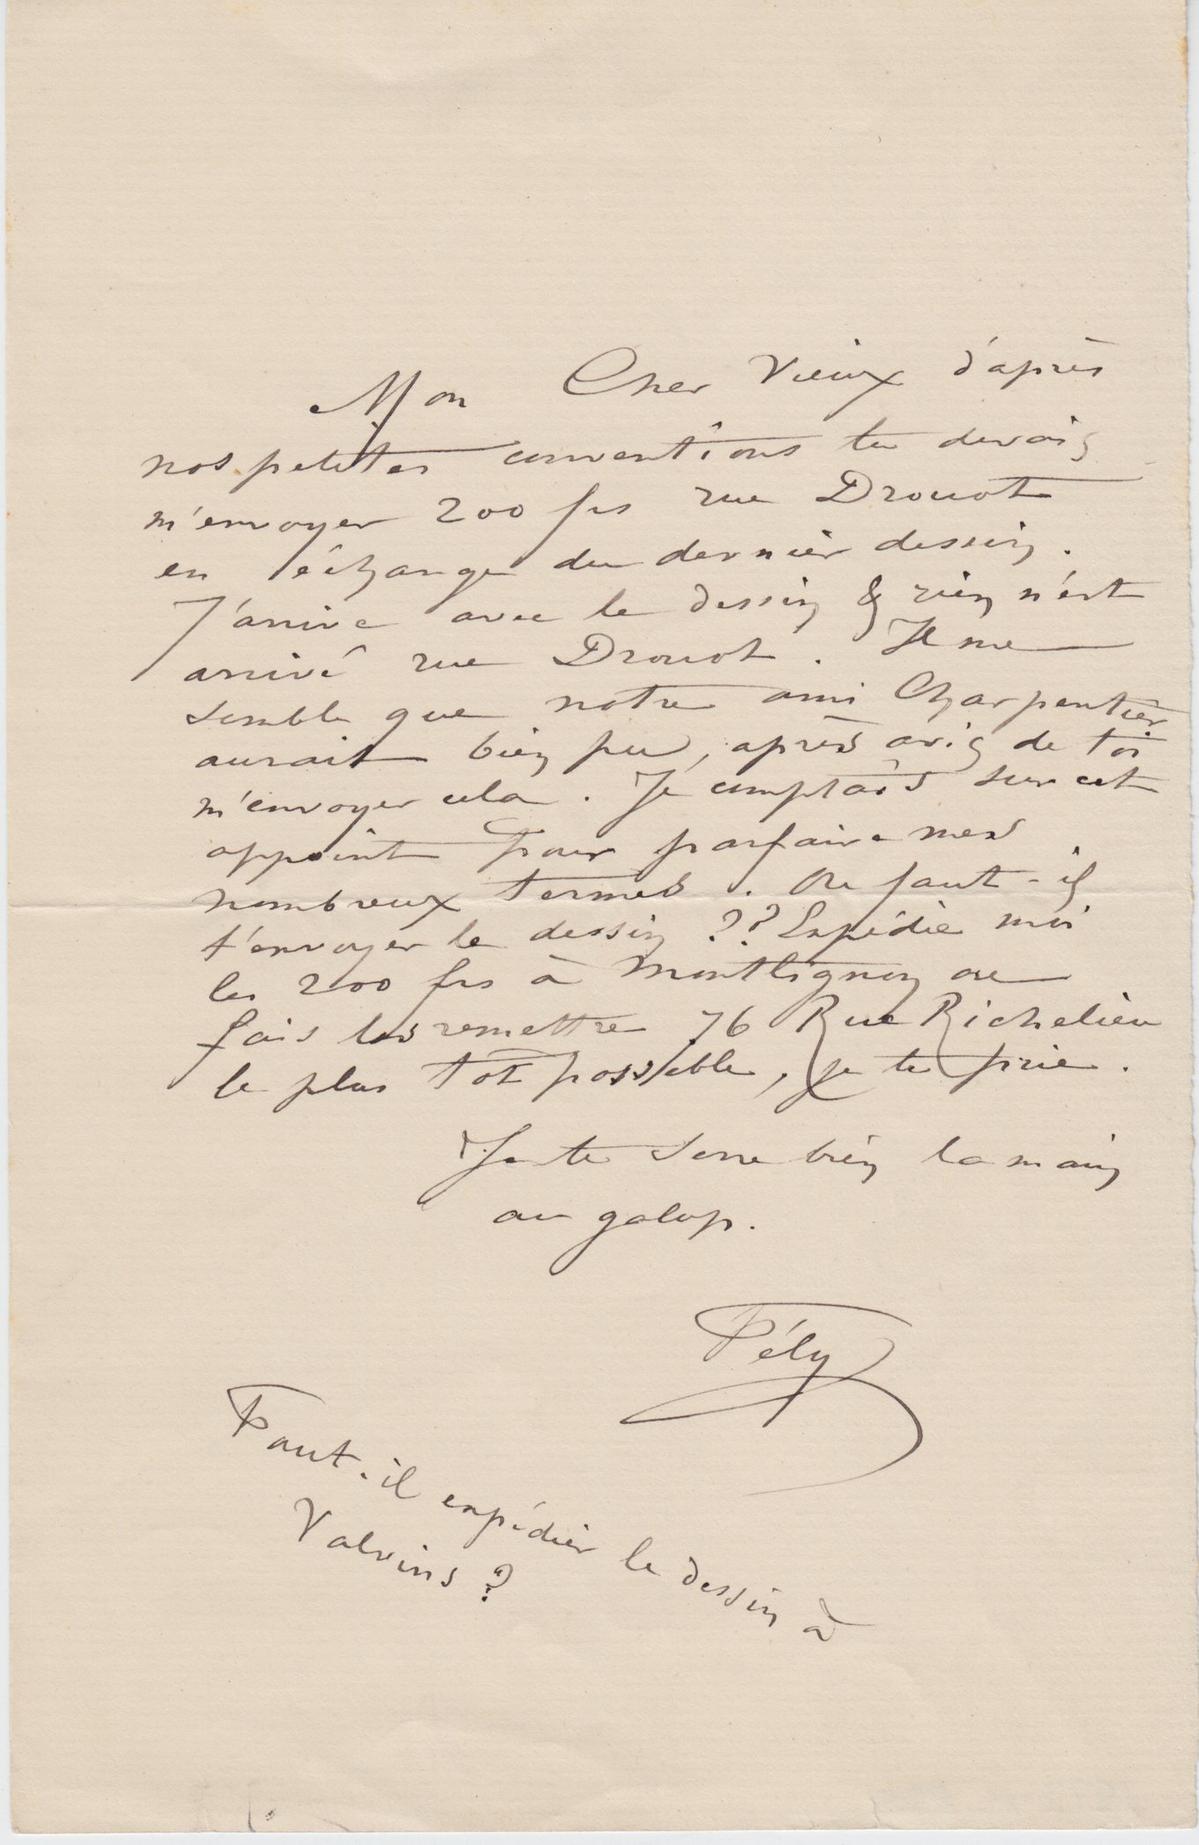 Mon Cher Vieux d'après
nos petites conventions tu devais
m'envoyer 200 frs rue Drouot
en échange du dernier dessin.
J'arrive avec le dessin & rien n'est
arrivé rue Drouot. Il me
semble que notre ami Charpentier
aurait bien pu, après avis de toi
m'envoyer cela. Je comptais sur cet
appoint pour parfaire mes
nombreux termes. Où faut-il
t'envoyer le dessin ?? Expédie moi
les 200 frs à Montlignon ou
fais les remettre 76 Rue Richelieu
le plus tôt possible, je te prie.
Je te serre bien la main
au galop.
Fély
Faut-il expédier le dessin à
Valvins ?